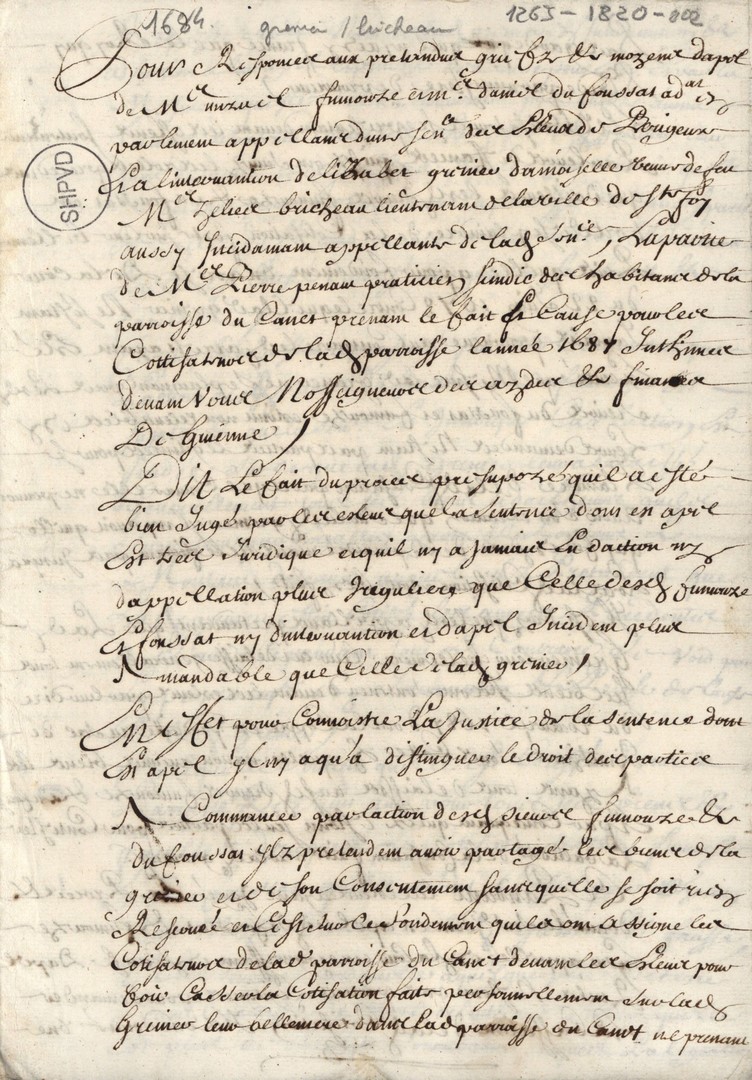 1684.
grenier / bricheau
1263 - 1820 - 002
SHPVD
Pour Respondre aux pretendus griefz & moyens dapel
de Mer fumouze et me. daniel du foussat adat
parlement appellans dune senc des Esleus de Perigeux
Et a lintervantion delizabet grenier damoiselle veuve de feu
Mer helies bricheau lieutenant de la ville de ste foy
aussy Incidamant appellante de lad senc, La partie
de Mer Pierre penant praticien sindic des habitans de la
parroisse du Canet prenant le fait Et Cause pour les
Cottisateurs de lad parroisse lannée 1687 Inthimes
devant Vous Nosseigneurs des aydes & finances
De Guienne
Dit Le fait du proces presupozé quil a esté
bien Jugé par les esleus que la Sentence dont en apel
Est tres Juridique et quil ny a Jamais Eu daction ny
dappellation plus Irreguliere que Celle desd fumouze
Et foussat ny dintervantion et dapel Incident plus
mandable que Celle de lad grenier
En effet pour Connoistre La Justice de la sentence dont
Est apel yl ny a qu'a distinguer le droit des parties
A Commancer par laction desd sieurs fumouze &
du foussat ylz pretendent avoir partagé les biens de la
grenier et de son Consentement sans quelle se soit rien
Reservé et C'est sur le fondement quilz ont assigné les
Cotisateurs de lad parroisse du Canet devant les Esleus pour
voir Casser la Cotisation faite personnellement sur lad
Grenier leur bellemere dans lad parroisse du Canet ne prenant